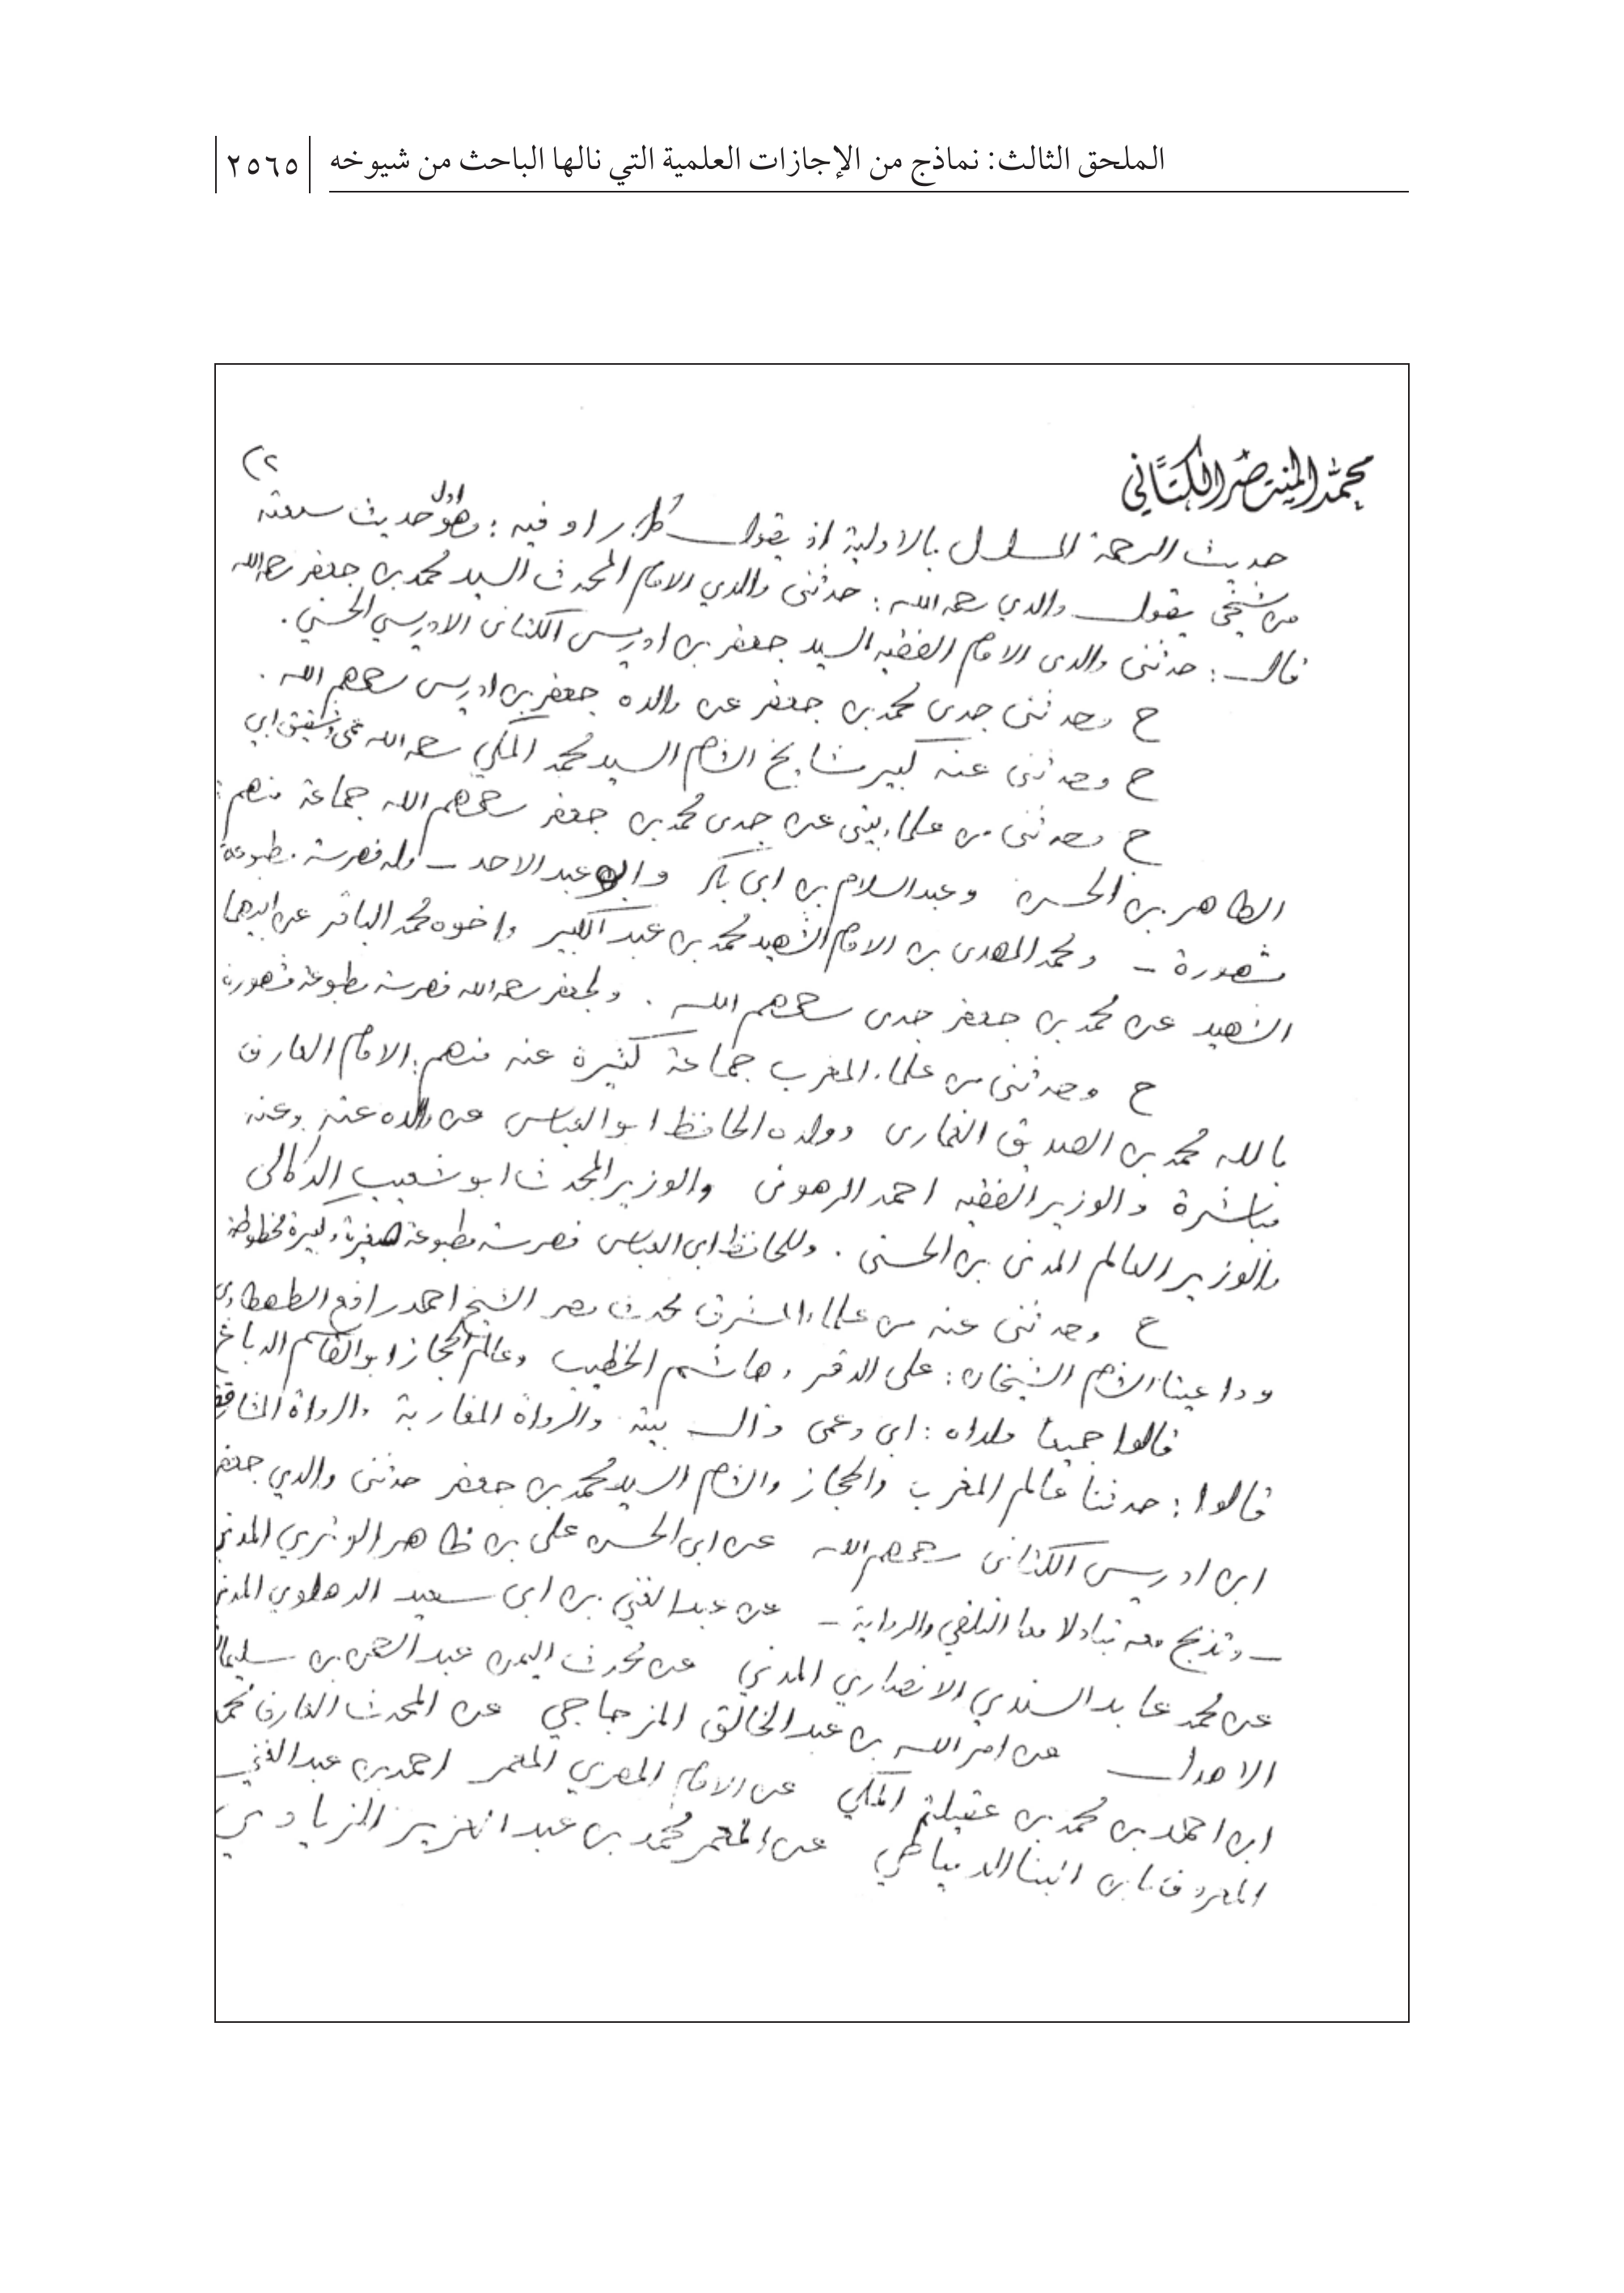 الملحق الثالث: نماذج من الإجازات العلمية التي نالها الباحث من شيوخه
٢٥٦٥
محمد المنتصر الكتاني
٢)
حديث الرحمة المسلسل بالاولية اذ يقول كل راو فيه: وهو اول حديث سمعته
من شيخي يقول والدي رحمه الله: حدثنى والدي الامام المحدث السيد محمد بن جعفر رحمه الله
قال: حدثنى والدى الامام الفقيه السيد جعفر بن ادريس الكتانى الادريسي الحسني.
ح وحدثنى جدى محمد بن جعفر عن والده جعفر بن ادريس رحمهم الله.
ح وحدثنى عنه كبير مشايخ الشام السيد محمد المكي رحمه الله عمى وشقيق ابي
ح وحدثنى من علماء بيتى عن جدى محمد بن جعفر رحمهم الله جماعة منهم:
الطاهر بن الحسن وعبد السلام بن ابى بكر و عبد الاحد - وله فهرسة مطبوعة
مشهورة - ومحمد المهدى بن الامام الشهيد محمد بن عبد الكبير واخوه محمد الباقر عن ابيهما
الشهيد عن محمد بن جعفر جدى رحمهم الله. ولجعفر رحمه الله فهرسة مطبوعة مشهورة
ح وحدثنى من علماء المغرب جماعة كثيرة عنه منهم: الامام العارف
بالله محمد بن الصديق الغمارى وولده الحافظ ابو العباس عن والده عنه وعنه
مباشرة والوزير الفقيه احمد الرهونى والوزير المحدث ابو شعيب الدكالى
والوزير العالم المدنى بن الحسنى. وللحافظ ابى العباس فهرسة مطبوعة صغيرة وكبيرة مخطوطة
ح وحدثنى عنه من علماء المشرق محدث مصر الشيخ احمد رافع الطهطاوى
وداعيتا الشام الشيخان: على الدقر وهاشم الخطيب وعالم الحجاز ابو القاسم الدباغ
قالوا جميعا ولداه: ابى وعمى وآل بيته والرواة المغاربة والرواة المشارقة
قالوا: حدثنا عالم المغرب والحجاز والشام السيد محمد بن جعفر حدثنى والدي جعفر
ابن ادريس الكتانى رحمهم الله عن ابى الحسن على بن ظاهر الوتري المدني
- وتدبج معه تبادلا معا التلقي والرواية - عن عبد الغني بن ابى سعيد الدهلوي المدني
عن محمد عابد السندي الانصاري المدني عن محدث اليمن عبد الرحمن بن سليمان
الاهدل عن امر الله بن عبد الخالق المزجاجي عن المحدث العارف محمد
ابن احمد بن محمد بن عقيلة المكي عن الامام المصري المعمر احمد بن عبد الغني
المعروف بابن البنا الدمياطي عن المعمر محمد بن عبد العزيز الزيادي